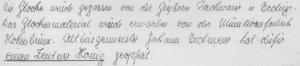 Die Glocke wurde gegossen von der Gießerei Bachmair in Erding.
Das Glockenmaterial wurde erworben von der Munitionsfabrik
Hohenbrunn. Altbürgermeister Johann Eichmeier hat dafür
einen Zentner Honig geopfert.